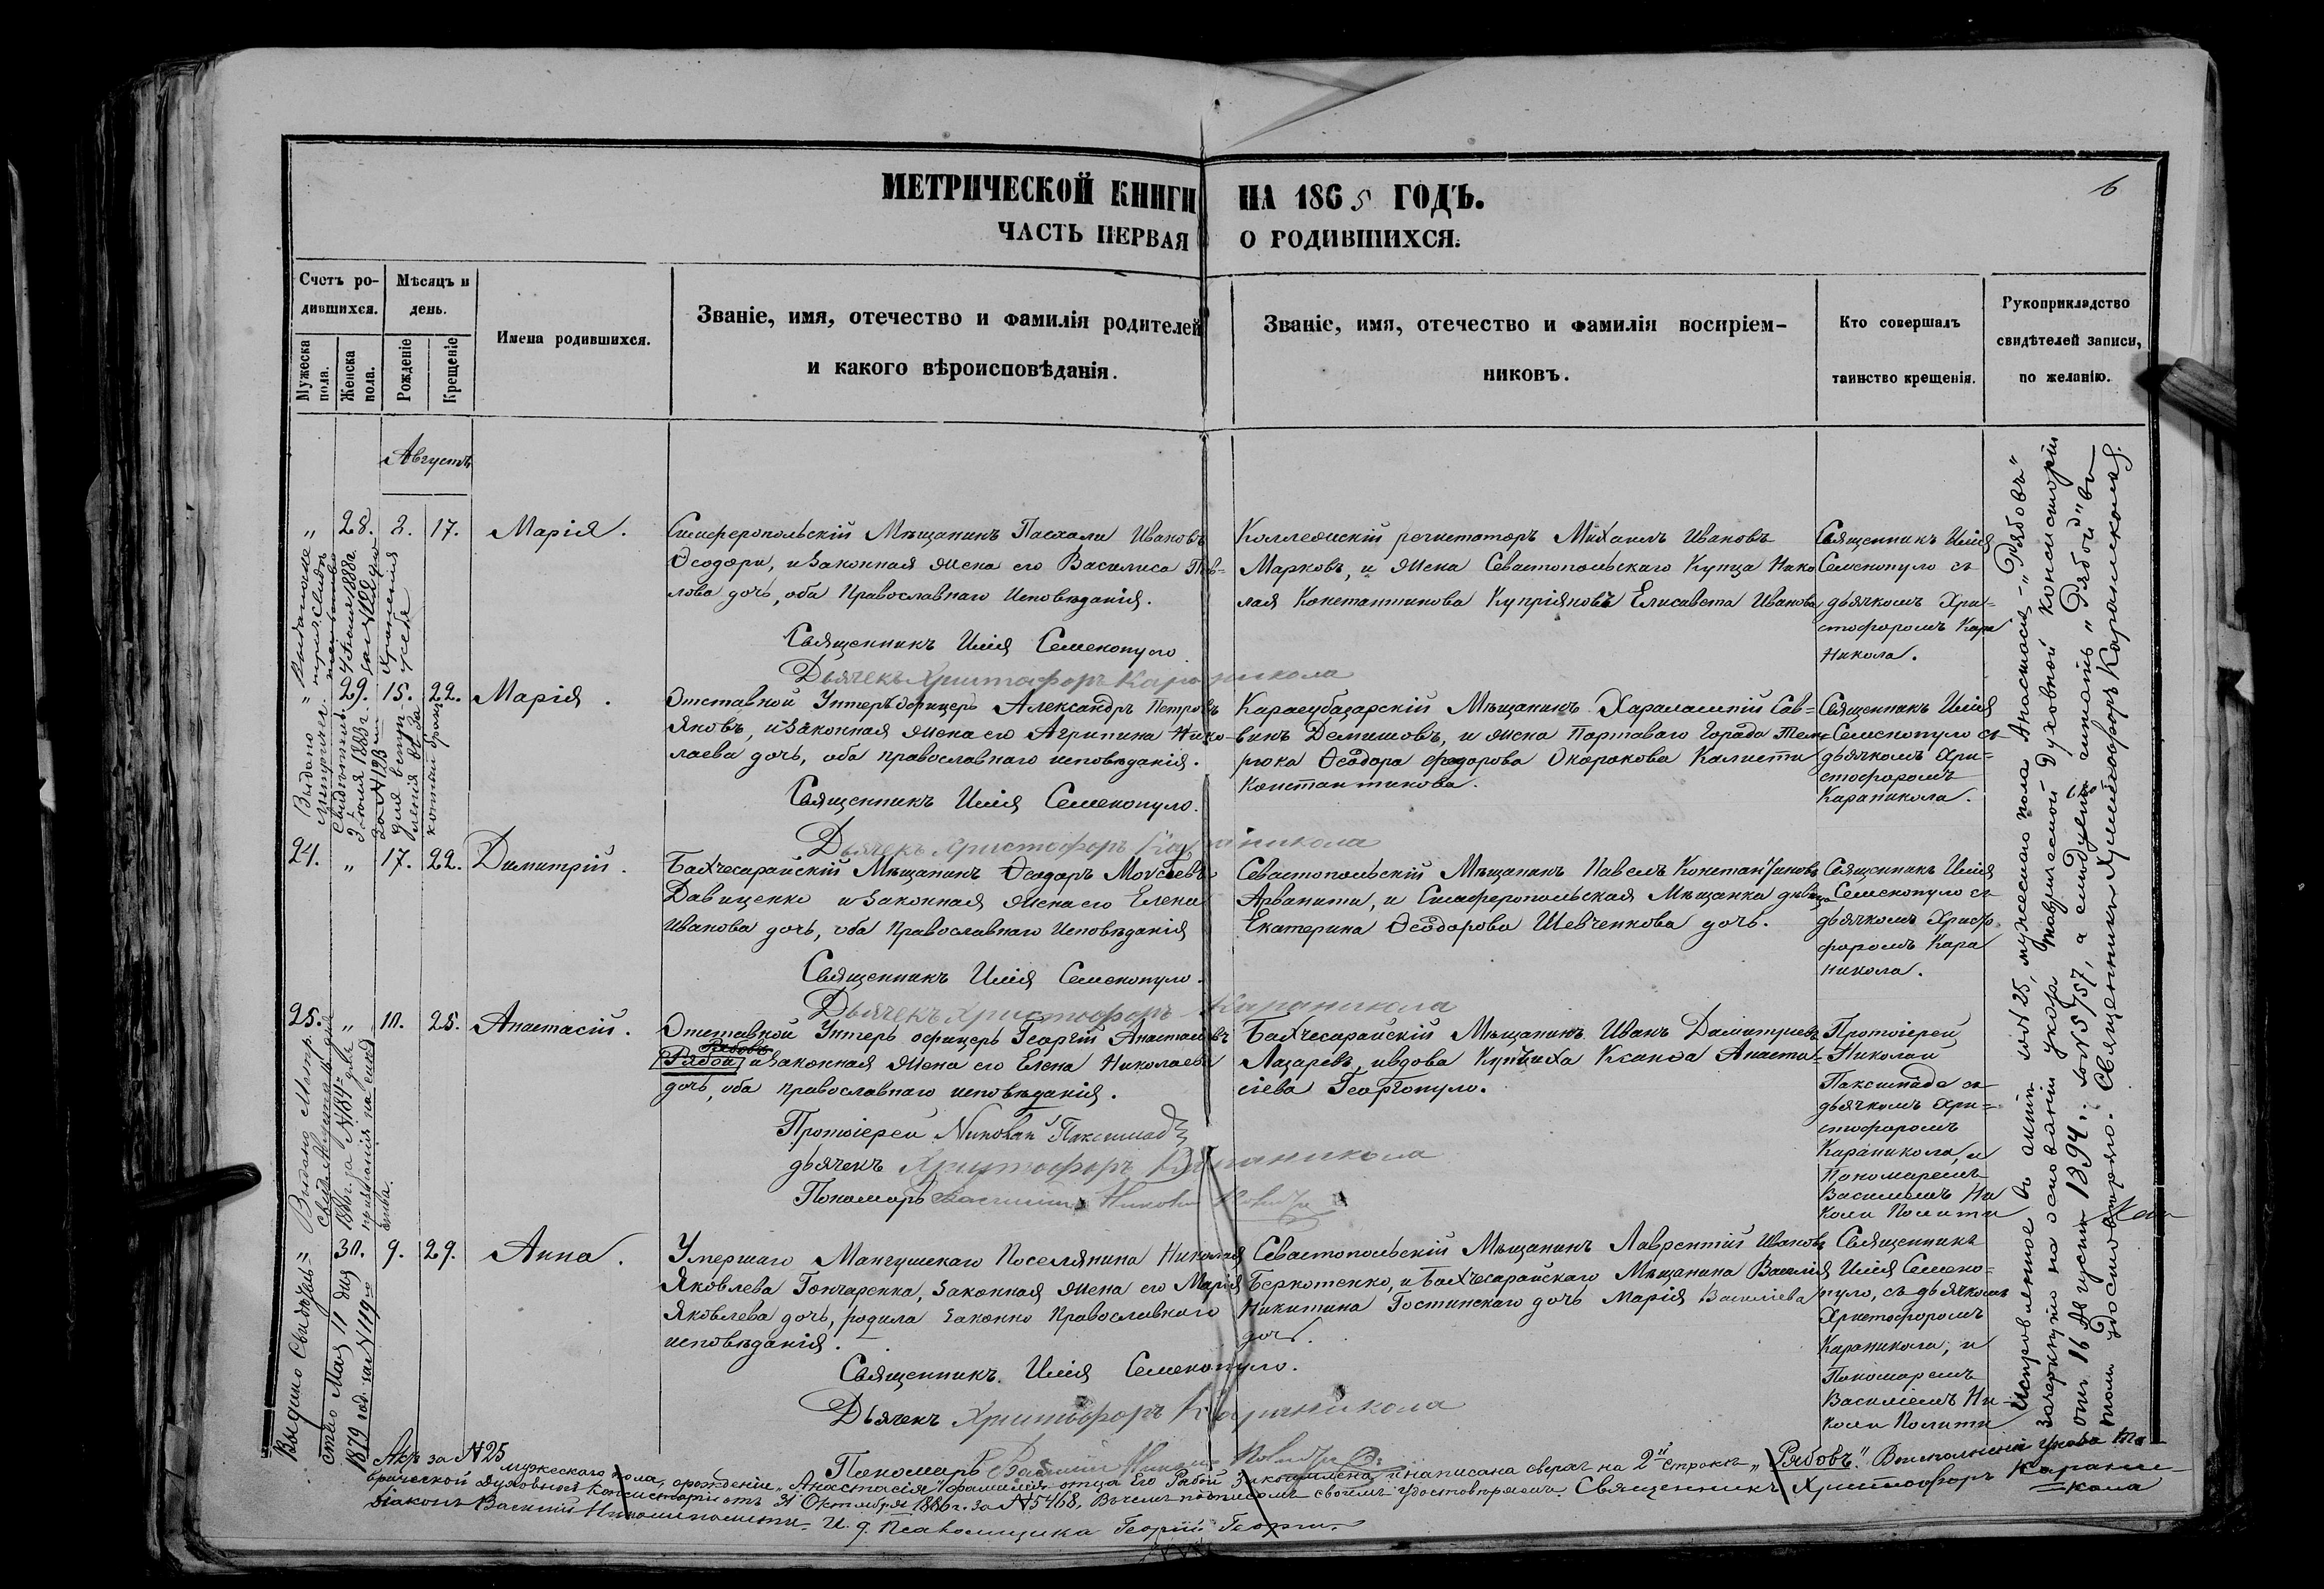 МЕТРИЧЕСКОЙ КНИГИ НА 1865 ГОДЪ.
6
ЧАСТЬ ПЕРВАЯ О РОДИВШИХСЯ.
Счетъ ро-
дившихся.
Мужеска
пола.
Женска
пола.
Мѣсяцъ и
день.
Рожденіе
Крещеніе
Имена родившихся.
Званіе, имя, отечество и фамилія родителей
и какого вѣроисповѣданія.
Званіе, имя, отечество и фамилія воспріем-
никовъ.
Кто совершалъ
таинство крещенія.
Рукоприкладство
свидѣтелей записи,
по желанію.
Августъ
„ 28. 2. 17. Марія.
Симферопольскій Мѣщанинъ Пасхали Ивановъ
Ѳеодори, и законная жена его Василиса Пав=
лова дочь, оба Православнаго Исповѣданія.
Священникъ Илія Семенопуло
Дьячекъ Христофоръ Карапикола
Коллежскій регистаторъ Михаилъ Ивановъ
Марковъ, и жена Севастопольскаго Купца Нико
лая Константинова Купріяновъ Елисавета Иванова
Священникъ Илія
Семенопуло съ
дьячкомъ Хри=
стофоромъ Кара
Никола.
„ 29. 15. 22. Марія.
Отставной Унтеръ офицеръ Александръ Петровъ
Яковъ, и законная жена его Агрипина Нико-
лаева дочь, оба православнаго исповѣданія.
Священникъ Илія Семенопуло.
Дьячекъ Христофоръ Караникола
Карасубазарскій Мѣщанинъ Харалампій Сав=
винъ Демишовъ, и жена Портоваго Города Тем=
рюка Ѳеодора Федорова Окорокова
Константинова.
Священникъ Илія
Семенопуло съ
дьячкомъ Хри=
стофоромъ
Караникола.
24. „ 17. 22. Димитрій.
Бахчесарайскій Мѣщанинъ Ѳеодоръ Моѵсѣевъ
Давиценко и законная жена его Елена
Иванова дочь, оба Православнаго Исповѣданія
Священникъ Илія Семенопуло.
Дьячекъ Христофоръ Караникола
Севастопольскій Мѣщанинъ Павелъ Константиновъ
Арванити, и Симферопольская Мѣщанка дѣвица
Екатерина Ѳеодорова Шевченкова дочь.
Священникъ Илія
Семенопуло съ
дьячкомъ Христо
форомъ Кара
никола.
25. „ 10. 25. Анастасій.
Отставной Унтеръ офицеръ Георгій Анастасіевъ
Рябовъ
Рябой и законная жена его Елена Николаева
дочь, оба православнаго исповѣданія.
Протоіерей Николай Паксимад
дьячекъ Христофоръ Караникола
Пономарь Василій Николи Полити
Бахчесарайскій Мѣщанинъ Иванъ Димитріевъ
Лазаревъ, и вдова Купчиха Ксанѳа Анаста=
сіева Георгопуло.
Протоіерей
Николай
Паксимаде съ
дьячкомъ Хри=
стофоромъ
Караникола, и
Пономаремъ
Василіемъ Ни
коли Полити
„ 30. 9. 29. Анна.
Умершаго Мангушскаго Поселянина Николая
Яковлева Гончаренка, законная жена его Марія
Яковлева дочь, родила законно Православнаго
исповѣданія.
Священникъ Илія Семенопуло.
Дьячекъ Христофоръ Караникола
Пономарь Василій Николи Полити
Севастопольскій Мѣщанинъ Лаврентій Ивановъ
Беркотенко, и Бахчесарайскаго Мѣщанина Василія
Никитина Гостинскаго дочь Марія Василіева
дочь.
Священникъ
Илія Семено=
пуло, съ дьячкомъ
Христофоромъ
Караникола, и
Пономаремъ
Василіемъ Ни-
коли Полити
Выдано
метрическ.
Свидѣтель.
Іюля 1883 г.
за № 123
для вступ
ленія въ За
конный бракъ
Выдано Метр.
1886 г. за № 184
Выдано Свидѣтель=
ство Мая 11 дня
1879 год. за № 119
Исправленное въ актѣ подъ № 25, мужескаго пола Анастасія - „Рябовъ"
зачеркнуто на основаніи указа Таврической Духовной Консисторіи
отъ 16 Августа 1894 г. за № 5757, а слѣдуетъ читать „Рябой" въ
томъ удостовѣряю. Священникъ Христофоръ Караникола.
Акр за № 25
мужескаго пола, о рожденіи „Анастасія" фамилія отца Его Рябой написана сверхъ на 2й строкѣ „Рябовъ". Указа Та
врической Духовной Консисторіи отъ 31 Октября 1886 г. за № 5468, въ чемъ подписомъ своимъ удостовѣряемъ. Священникъ Христофоръ Карани
кола
Діаконъ Василій Николи Полити. И. д. Псаломщика Георгій Георги